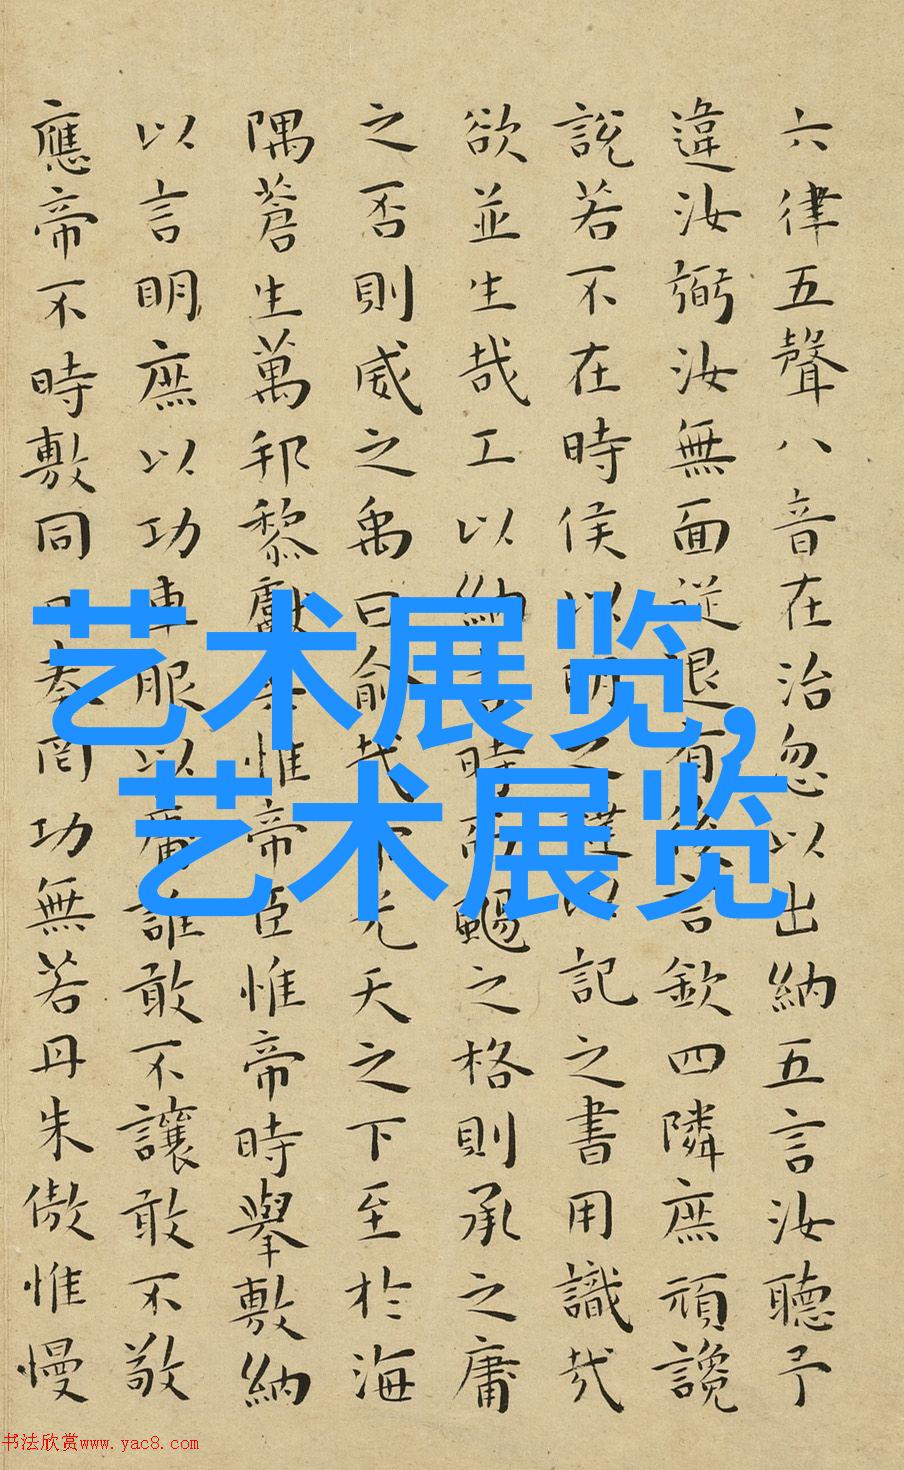 六律五聲八音在治忽以出納五言汝聽予
違汝弼汝無面從退有後言欽四隣庶頑讒
說若不在時侯以明之撻以記之書用識哉
欲並生哉工以納言時而颺之格則承之庸
之否則威之禹曰俞哉帝光天之下至於海
隅蒼生萬邦黎獻共惟帝臣惟帝時舉敷納
以言明庶以功車服以庸誰敢不讓敢不敬
應帝不時敷同日奏罔功無若丹朱傲惟慢
艺术展览,
艺术展览
书法欣赏www.yac8.com